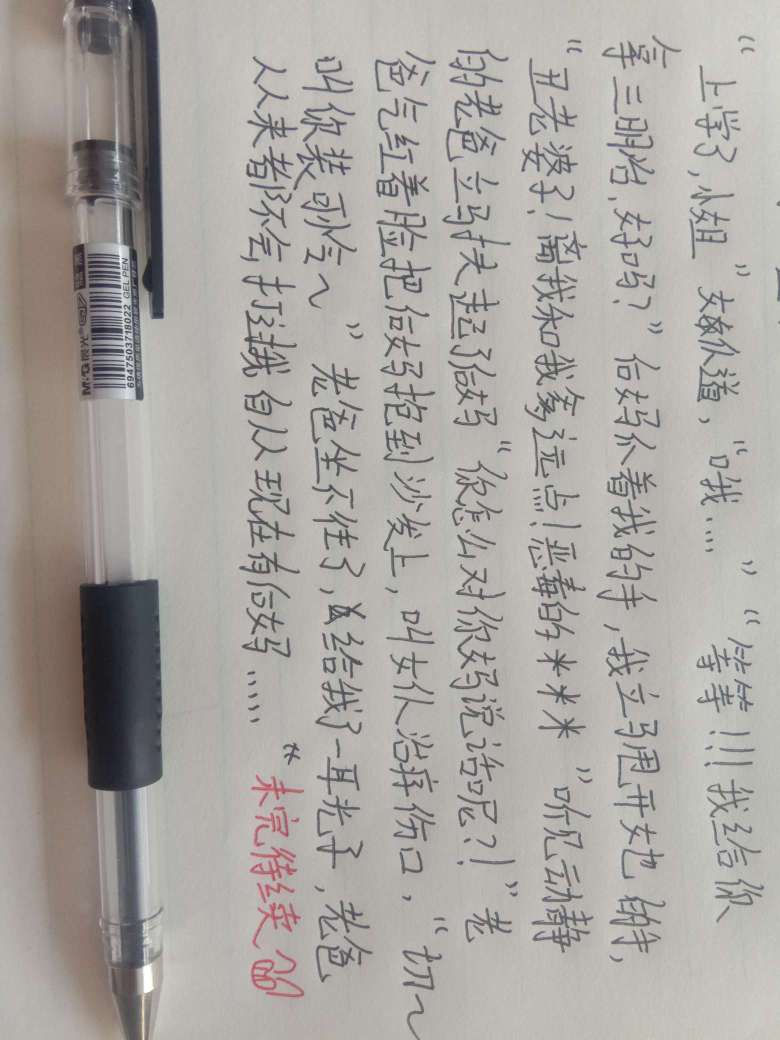 “上学了,小姐”女仆道,“哦....”“等等!!!我给你
拿三明治,好吗?”后妈介着我的手,我立马甩开她的手,
“丑老婆子!离我和我爹远点!恶毒的米米米”听见动静
的老爸立马扶起了后妈“你怎么对你妈说话呢?!”老
爸气红着脸把后妈抱到沙发上,叫女仆治疗伤口,“切~
叫你装可怜~”老爸坐不住了,给我了一耳光子,老爸
从来都不会打我自从现在有后妈.....“
未完待续
M&G晨光
GEL PEN
6947503718022